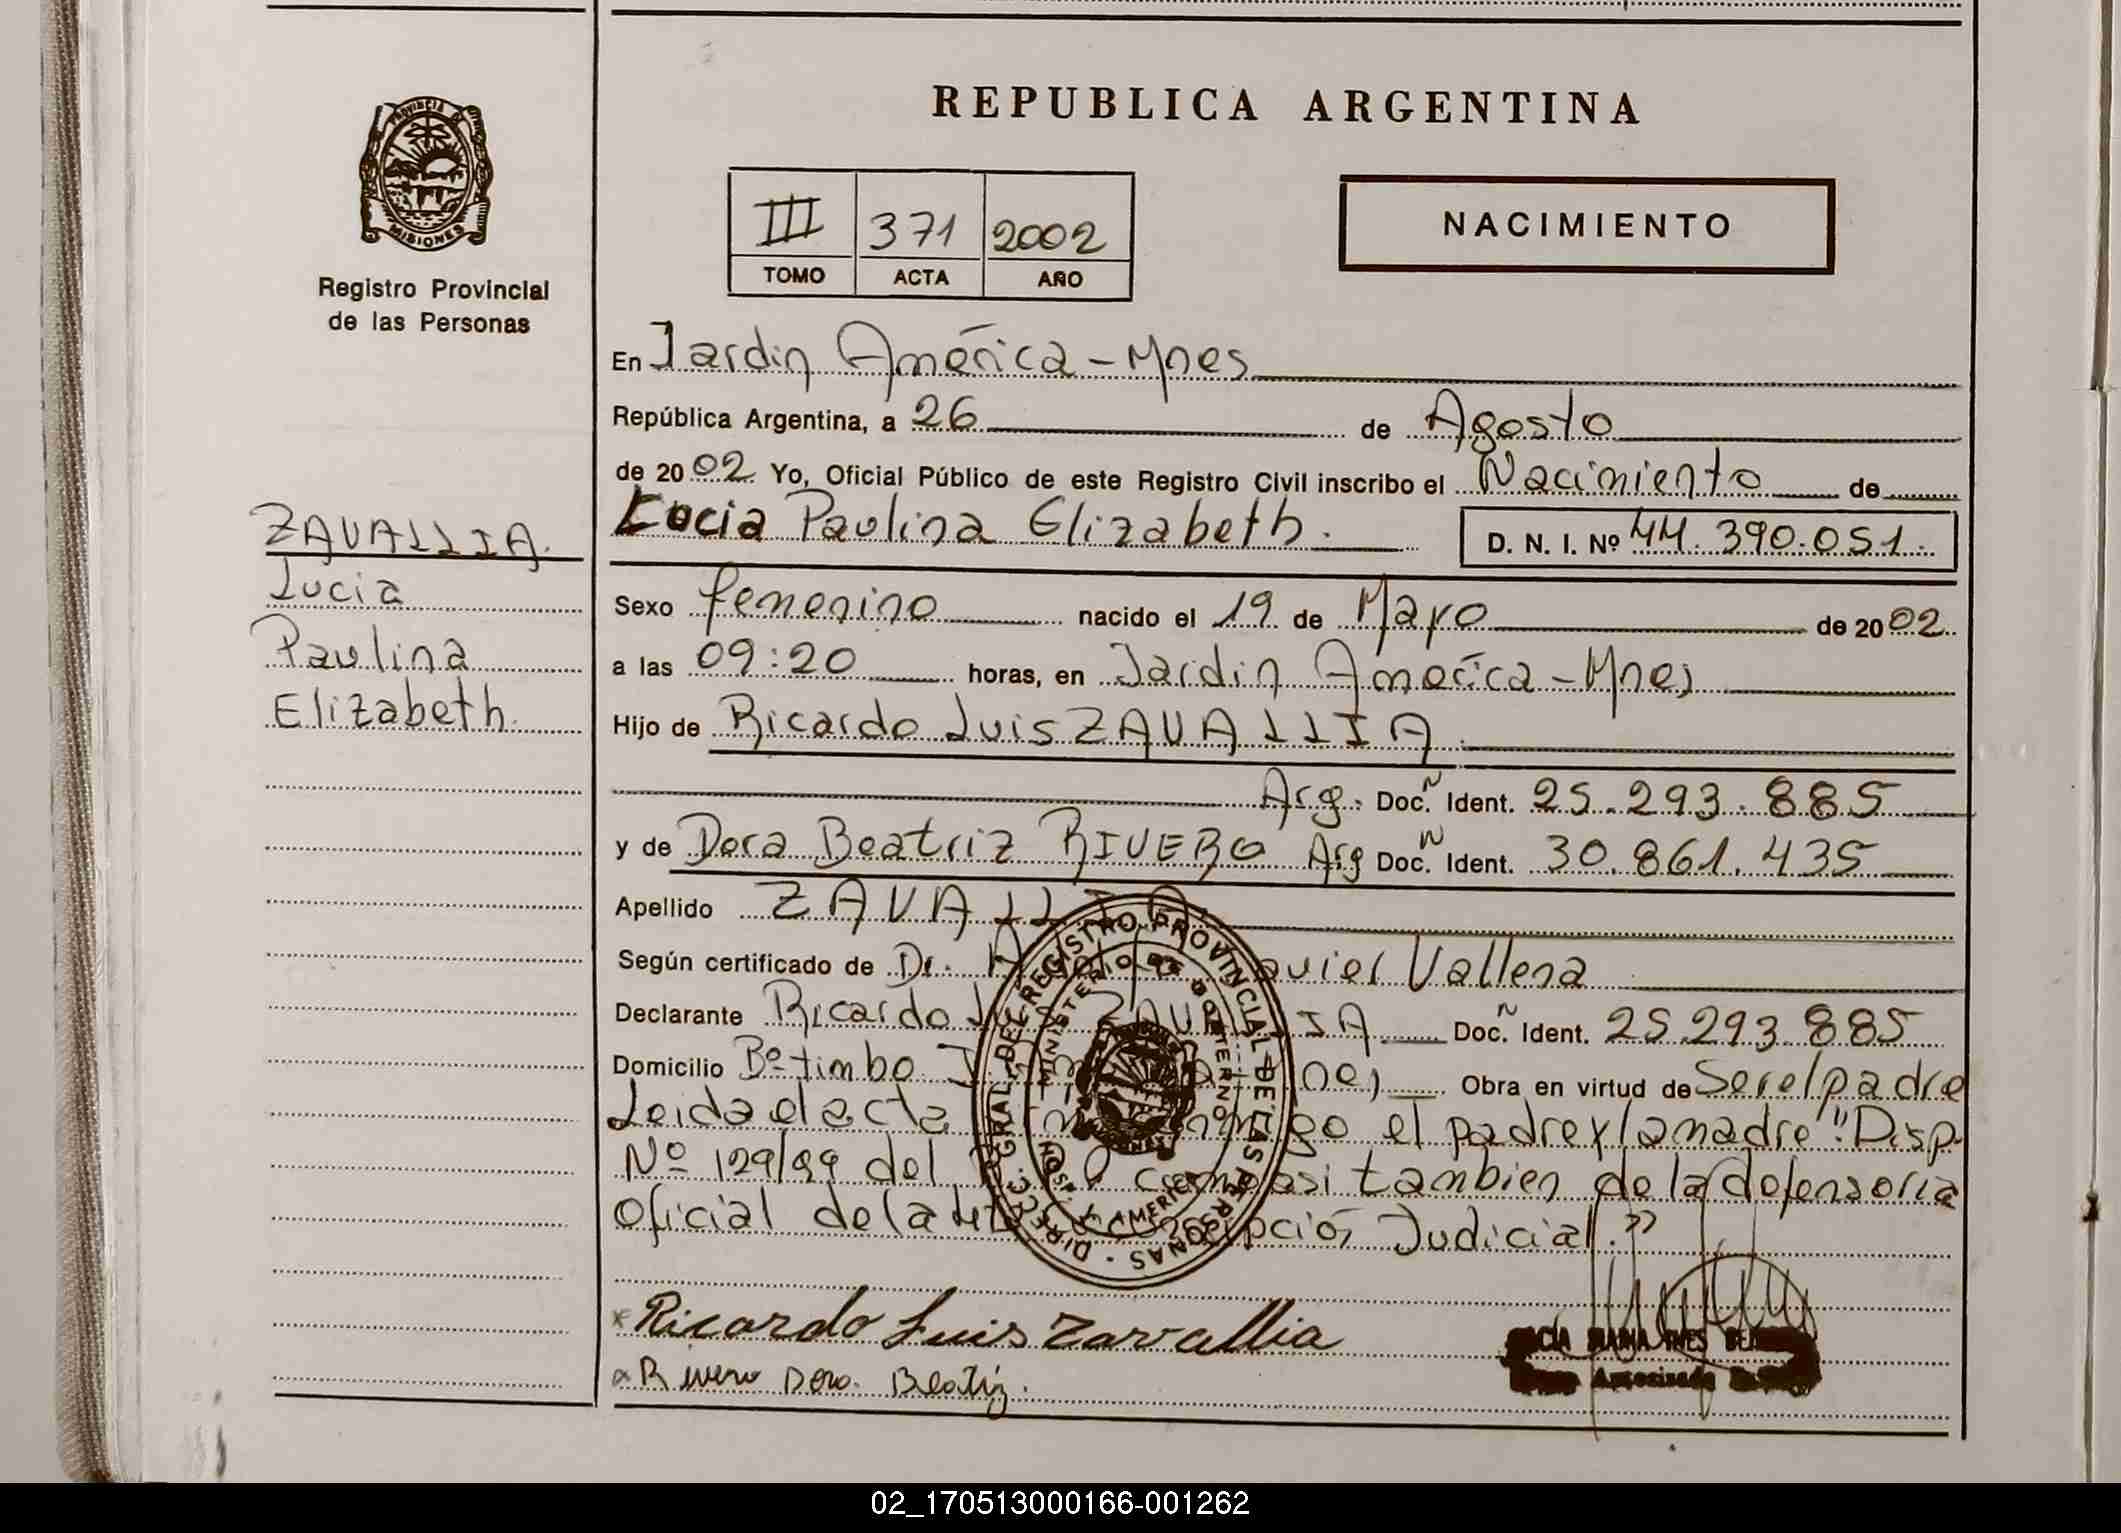 REPUBLICA ARGENTINA
PROVINCIA DE MISIONES
Registro Provincial
de las Personas
III 371 2002
TOMO ACTA AÑO
NACIMIENTO
En Jardin América - Mnes
República Argentina, a 26 de Agosto
de 2002. Yo, Oficial Público de este Registro Civil inscribo el Nacimiento de
Lucia Paulina Elizabeth. D. N. I. Nº 44.390.051.
ZAVALLIA.
Lucia
Paulina
Elizabeth.
Sexo femenino nacido el 19 de Mayo de 2002.
a las 09:20 horas, en Jardin América - Mnes
Hijo de Ricardo Luis ZAVALLIA
Arg. Doc. N Ident. 25.293.885
y de Dora Beatriz RIVERO Arg Doc. N Ident. 30.861.435
Apellido ZAVALLIA
Según certificado de Dr. Javier Vallena
Declarante Ricardo Luis ZAVALLIA Doc. N Ident. 25.293.885
Domicilio Bº timbo Mnes Obra en virtud de Ser el padre
Leida el acta el padre y la madre "Disp.
Nº 129/99 del como asi tambien de la defensoria
oficial de la Judicial."
DIRECC. GRAL. DEL REGISTRO PROVINCIAL DE LAS PERSONAS
MINISTERIO DE GOBIERNO
Ricardo Luis Zavallia
Rivero Dora Beatriz.
MARIA INES
Autorizada
02_170513000166-001262